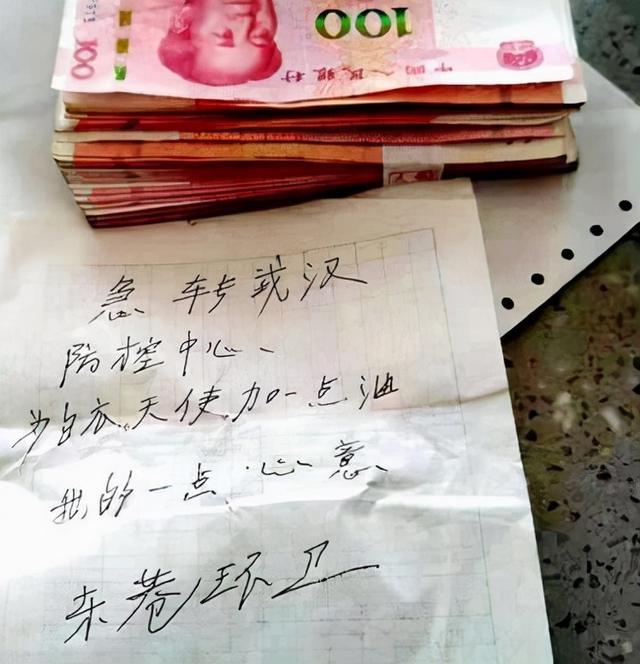 100
100
中国人民银行
急转武汉
防控中心、
为白衣天使加一点油
我的一点心意、
东巷环卫